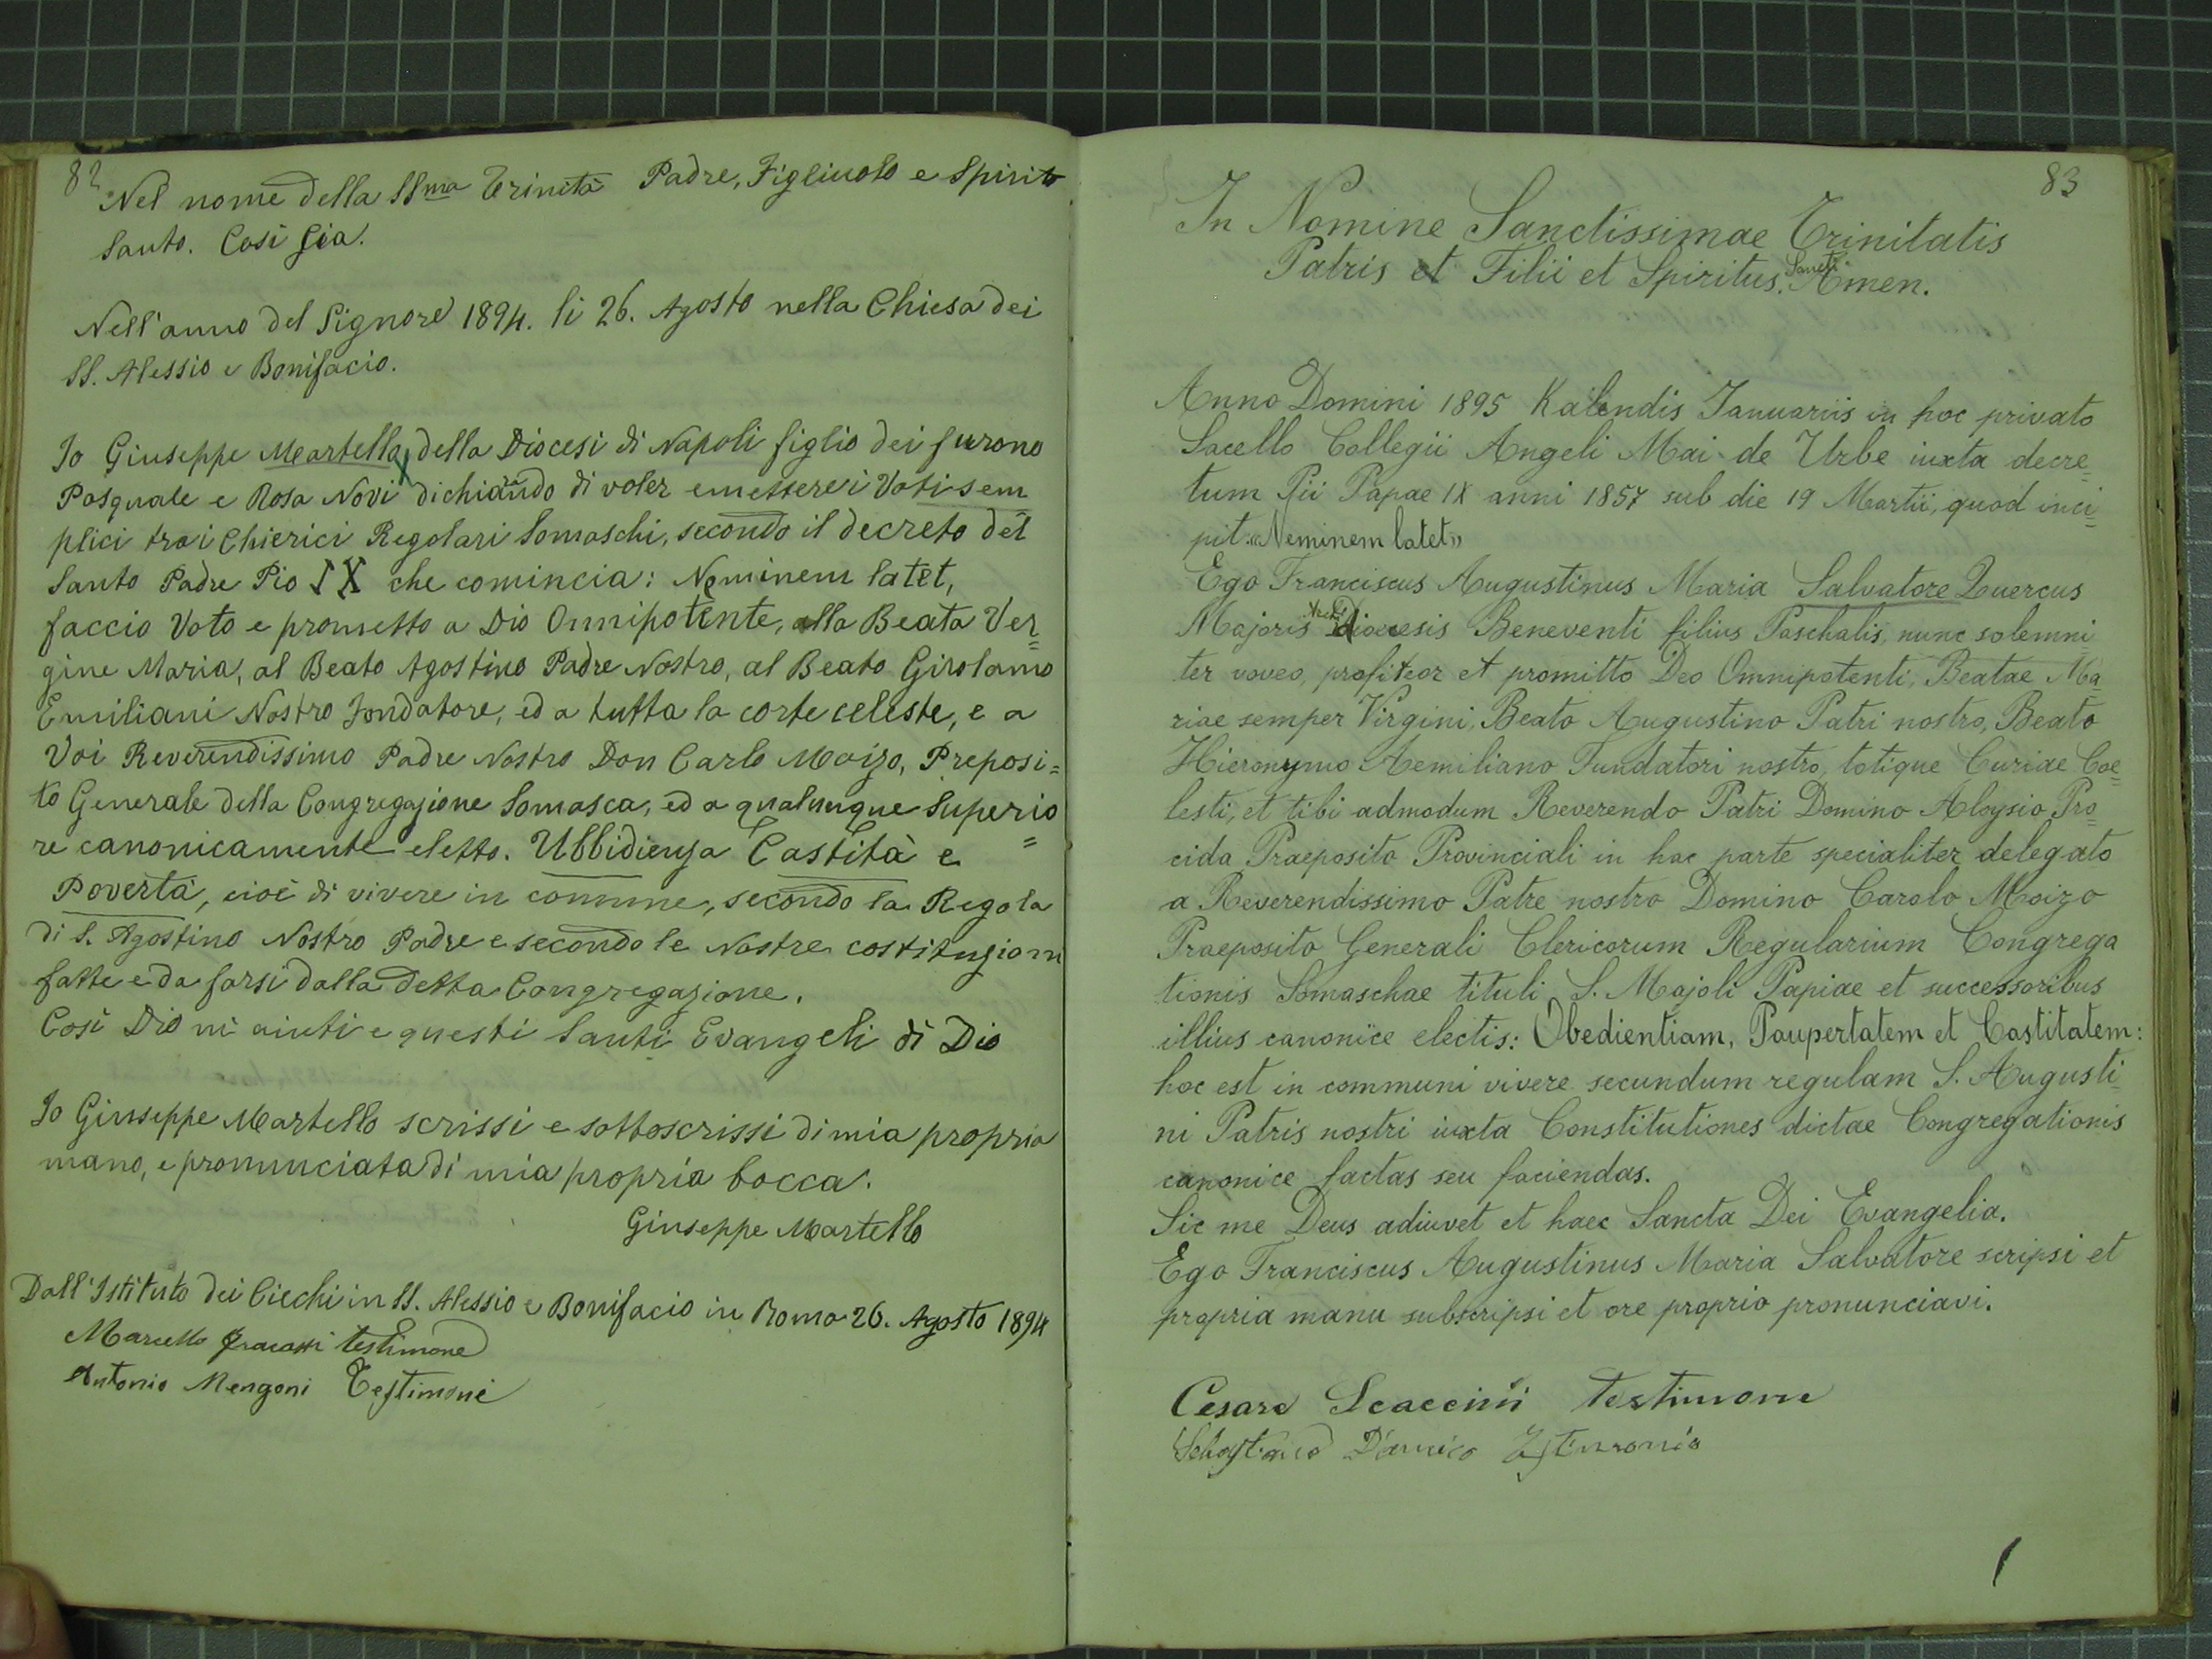 82
Nel nome della SSma Trinità Padre, Figliuolo e Spirito
Santo. Così sia.
Nell'anno del Signore 1894. li 26. Agosto nella Chiesa dei
SS. Alessio e Bonifacio.
Io Giuseppe Martello, della Diocesi di Napoli figlio dei furono
Pasquale e Rosa Novi dichiarando di voler emettere i Voti sem
plici tra i Chierici Regolari Somaschi, secondo il decreto del
Santo Padre Pio IX che comincia: Neminem latet,
faccio Voto e prometto a Dio Onnipotente, alla Beata Ver=
gine Maria, al Beato Agostino Padre Nostro, al Beato Girolamo
Emiliani Nostro Fondatore, ed a tutta la corte celeste, e a
Voi Reverendissimo Padre Nostro Don Carlo Moizo, Preposi=
to Generale della Congregazione Somasca, ed a qualunque Superio=
re canonicamente eletto. Ubbidienza Castità e
Povertà, cioè di vivere in comune, secondo la Regola
di S. Agostino Nostro Padre e secondo le Nostre costituzioni
fatte e da farsi dalla detta Congregazione.
Così Dio mi aiuti e questi Santi Evangeli di Dio
Io Giuseppe Martello scrissi e sottoscrissi di mia propria
mano, e pronunciata di mia propria bocca.
Giuseppe Martello
Dall'Istituto dei Ciechi in SS. Alessio e Bonifacio in Roma 26. Agosto 1894
Marcello testimone
Antonio Mengoni Testimone
83
In Nomine Sanctissimae Trinitatis
Patris et Filii et Spiritus Sancti. Amen.
Anno Domini 1895 Kalendis Januariis in hoc privato
Sacello Collegii Angeli Mai de Urbe iuxta decre=
tum Pii Papae IX anni 1857 sub die 19 Martii, quod inci=
pit «Neminem latet»
Ego Franciscus Augustinus Maria Salvatore Quercus
Majoris Archidioecesis Beneventi filius Paschalis, nunc solemni
ter voveo, profiteor et promitto Deo Omnipotenti, Beatae Ma=
riae semper Virgini, Beato Augustino Patri nostro, Beato
Hieronymo Aemiliano Fundatori nostro, totique Curiae Coe=
lesti, et tibi admodum Reverendo Patri Domino Aloysio Pro=
cida Praeposito Provinciali in hac parte specialiter delegato
a Reverendissimo Patre nostro Domino Carolo Moizo
Praeposito Generali Clericorum Regularium Congrega
tionis Somaschae tituli S. Majoli Papiae et successoribus
illius canonice electis: Obedientiam, Paupertatem et Castitatem:
hoc est in communi vivere secundum regulam S. Augusti
ni Patris nostri iuxta Constitutiones dictae Congregationis
canonice factas seu faciendas.
Sic me Deus adiuvet et haec Sancta Dei Evangelia.
Ego Franciscus Augustinus Maria Salvatore scripsi et
propria manu subscripsi et ore proprio pronunciavi.
Cesare Scaccini testimone
D'amico